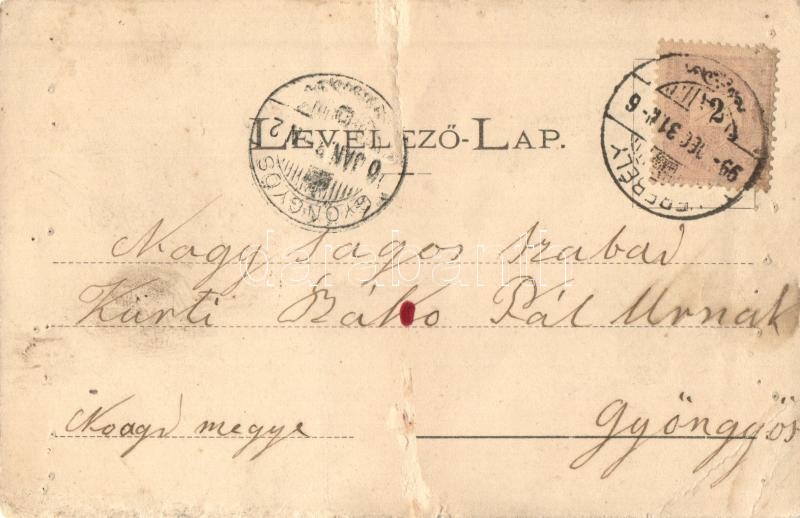 LEVELEZŐ-LAP.
GYÖNGYÖS
99 DEC 31
Nagy sagos szabad
Kürti Rákó Pál Urnak
megye
Gyöngyös
darabanth